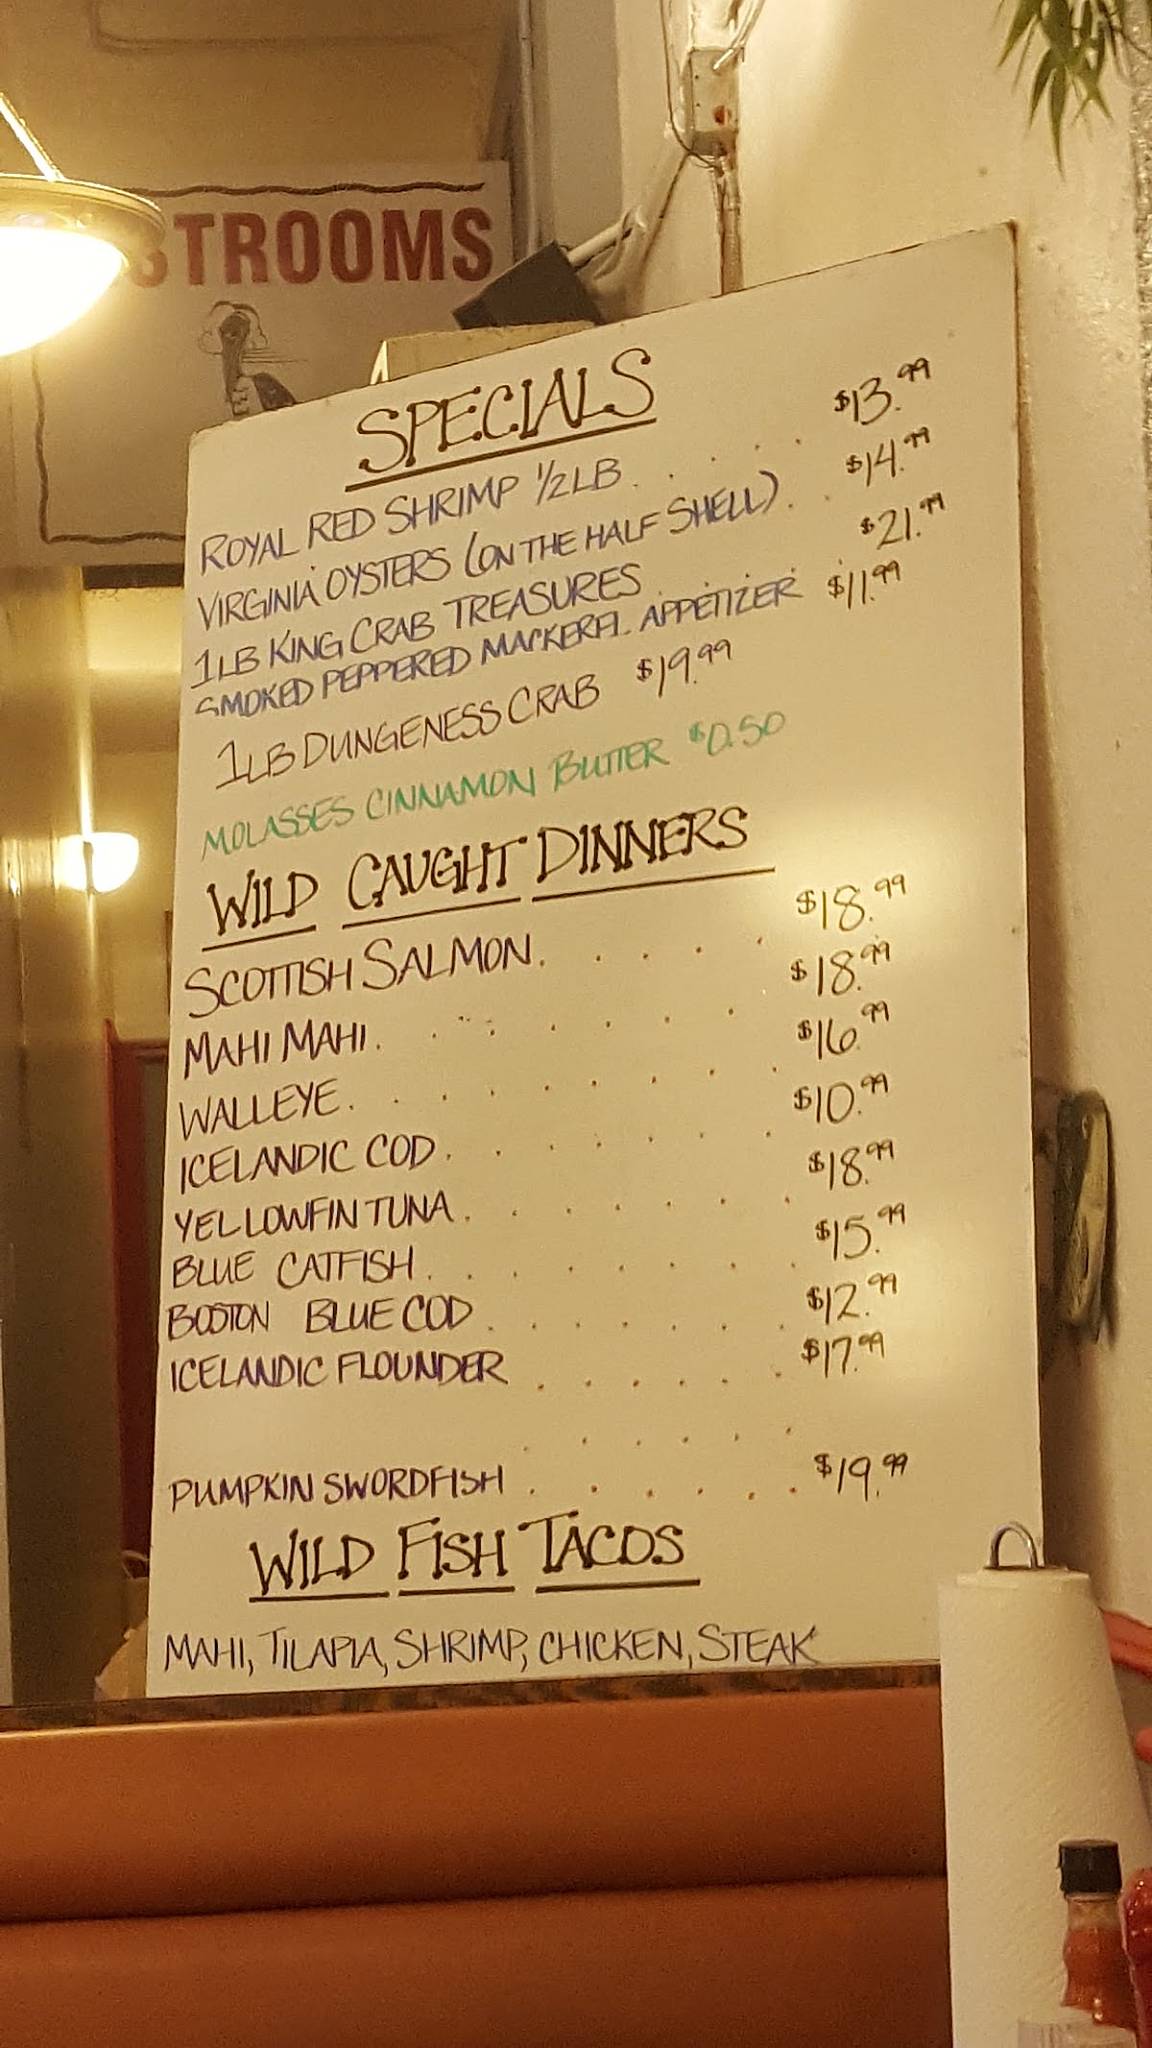 STROOMS
SPECIALS
ROYAL RED SHRIMP 1/2 LB . . . . $13.99
VIRGINIA OYSTERS (ON THE HALF SHELL) . . $14.99
1LB KING CRAB TREASURES . . . . $21.99
SMOKED PEPPERED MACKEREL APPETIZER $11.99
1LB DUNGENESS CRAB $19.99
MOLASSES CINNAMON BUTTER $0.50
WILD CAUGHT DINNERS
SCOTTISH SALMON . . . . . $18.99
MAHI MAHI . . . . . . . $18.99
WALLEYE . . . . . . . . $16.99
ICELANDIC COD . . . . . . . $10.99
YELLOWFIN TUNA . . . . . . . $18.99
BLUE CATFISH . . . . . . . . $15.99
BOSTON BLUE COD . . . . . . . $12.99
ICELANDIC FLOUNDER . . . . . . $17.99
PUMPKIN SWORDFISH . . . . . . $19.99
WILD FISH TACOS
MAHI, TILAPIA, SHRIMP, CHICKEN, STEAK